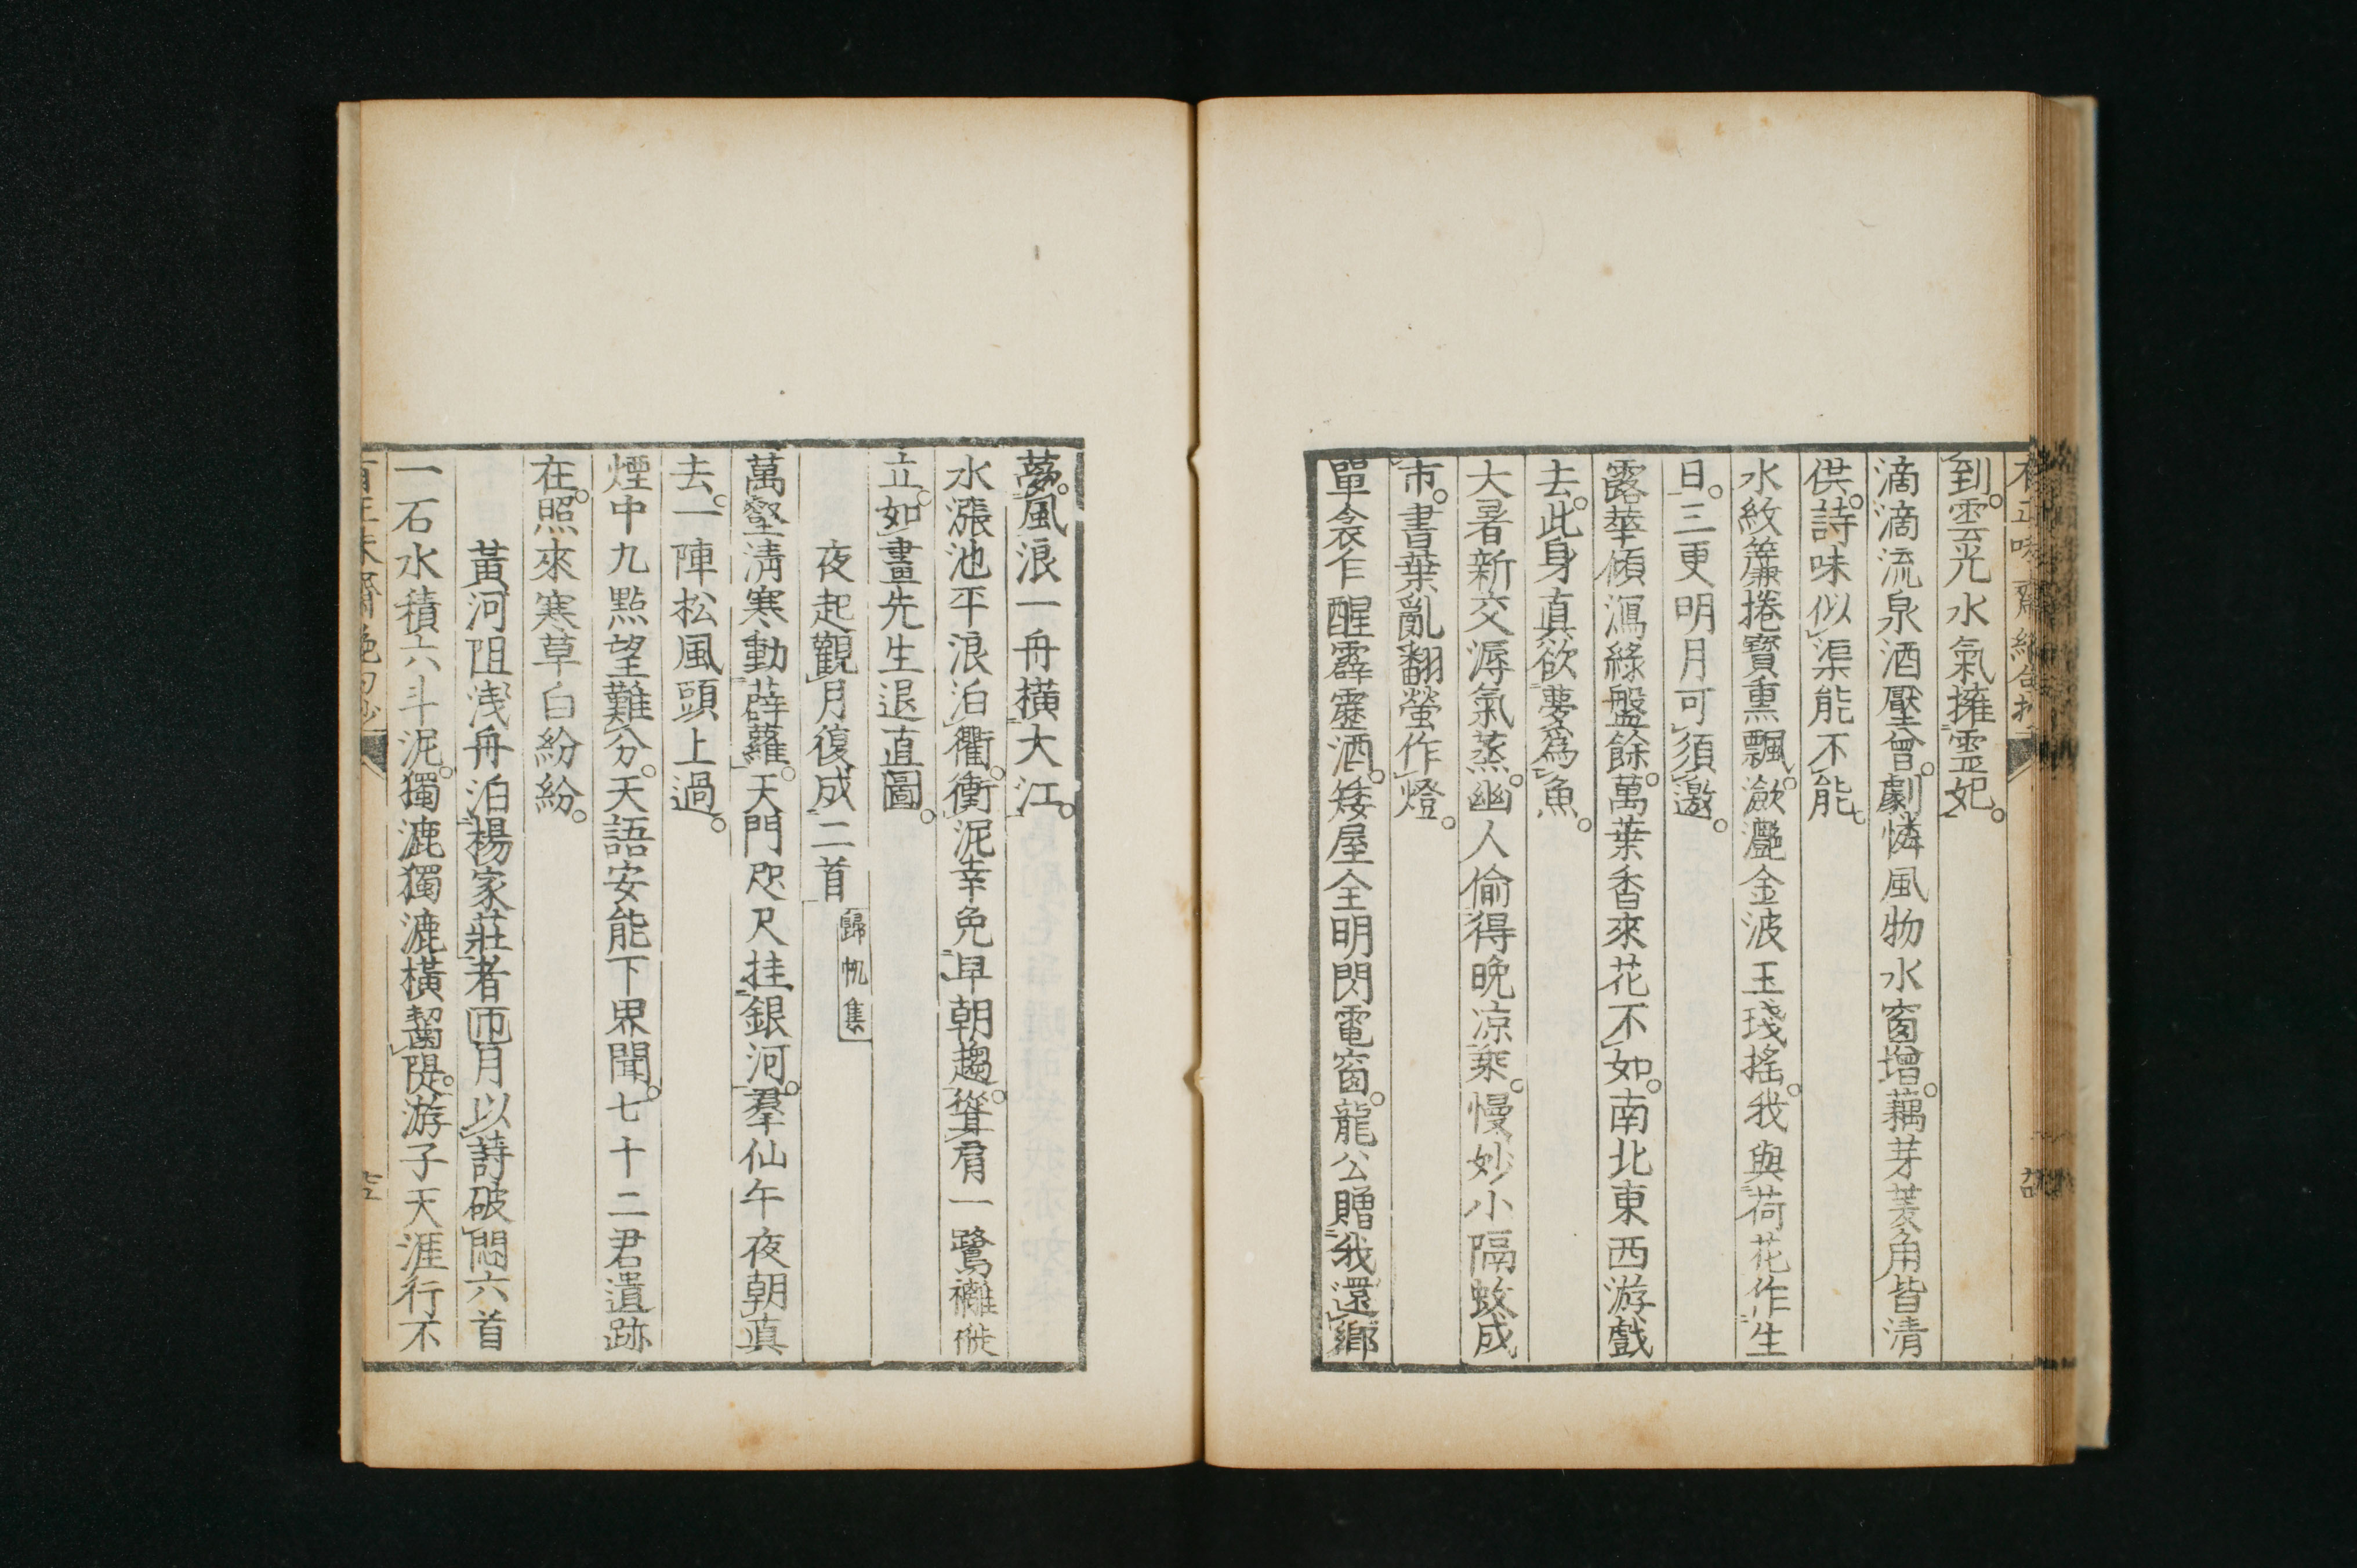 到。雲光水氣擁霊妃。
滴滴流泉酒壓曾。劇憐風物水窗增。藕芽菱角皆清
供。詩味似渠能不能。
水紋簾捲寳熏飄。瀲灔金波玉琖搖。我與荷花作生
日。三更明月可須邀。
露華傾瀉綠盤餘。萬葉香來花不如。南北東西游戲
去。此身真欲夢為魚。
大暑新交溽氣蒸。幽人偷得晚凉乘。慢妙小隔蚊成
市。書葉亂翻螢作燈。
單衾乍醒霹靂洒。矮屋全明閃電窗。龍公贈我還鄉
夢。風浪一舟橫大江。
水漲池平浪泊衢。衝泥幸免早朝趨。聳肩一鷺襳褷
立。如畫先生退直圖。
夜起觀月復成二首 歸帆集
萬壑淸寒動薜蘿。天門咫尺挂銀河。羣仙午夜朝真
去。一陣松風頭上過。
煙中九點望難分。天語安能下界聞。七十二君遺跡
在。照來寒草白紛紛。
黃河阻浅舟泊楊家莊者匝月以詩破悶六首
一石水積六斗泥。獨漉獨漉橫齧隄。游子天涯行不